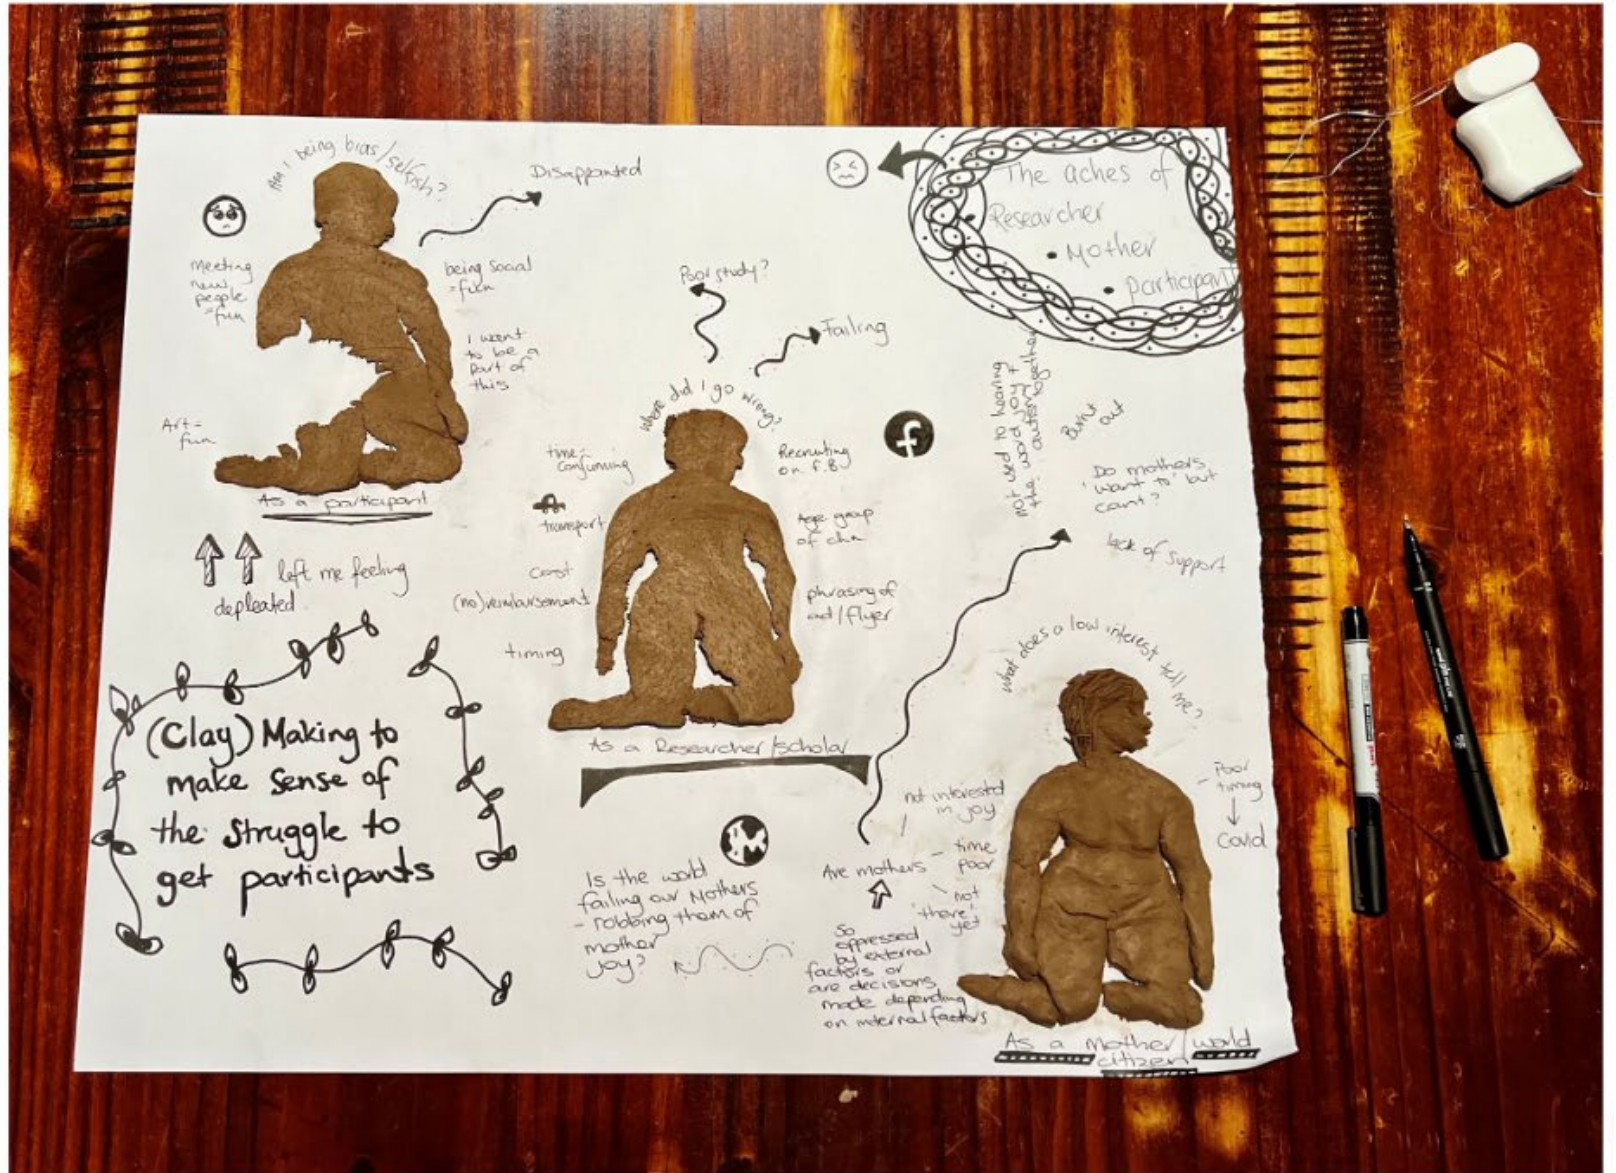 Am I being bias/selfish?
Disappointed
meeting
new
people
=fun
being social
=fun
I want
to be a
part of
this
Art=
fun
As a participant
left me feeling
depleated
(Clay) Making to
make sense of
the struggle to
get participants
The aches of
Researcher
• Mother
• participant
Poor study?
Failing
where did I go wrong?
time-
conjuming
transport
cost
(no)reimbursement
timing
Recruiting
on F.B
f
Age group
of chn
phrasing of
ad/flyer
As a Researcher/scholar
not used to hearing
the word joy +
the: autism together
Burnt
out
Do mothers
'want to' but
cant?
lack of support
What does a low interest tell me?
- Poor
timing
Covid
not interested
in joy
Are mothers
- time
poor
not
'there'
yet
So
oppressed
by external
factors or
are decisions
made depending
on internal factors
Is the world
failing our Mothers
- robbing them of
mother
joy?
As a Mother/world
citizen